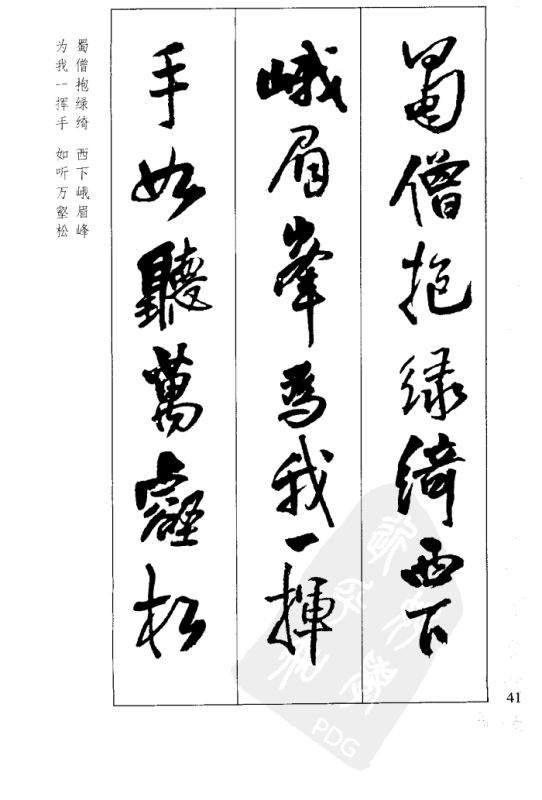 蜀僧抱緑綺西下
峨眉峯為我一揮
手如聽萬壑松
蜀僧抱绿绮 西下峨眉峰
为我一挥手 如听万壑松
41
PDG